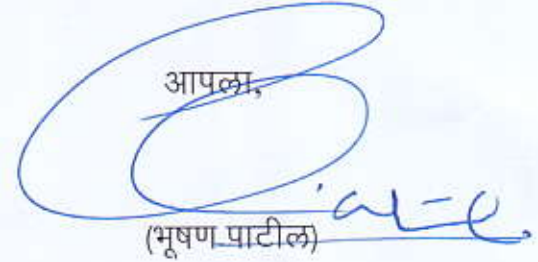 आपला,
(भूषण पाटील)